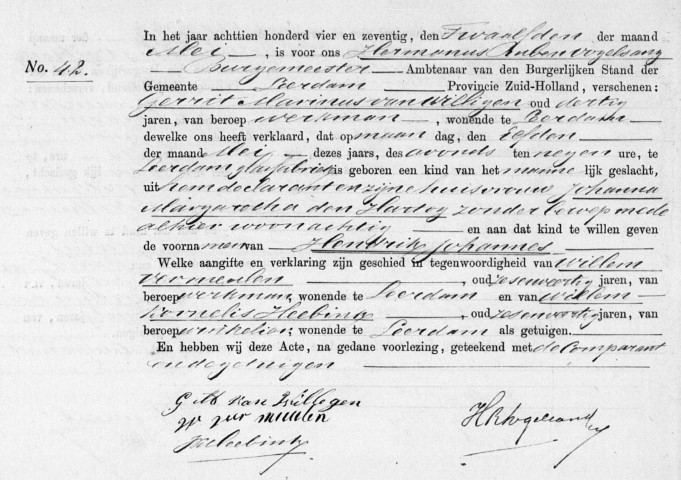 In het jaar achttien honderd vier en zeventig, den Twaalfden der maand
Mei, is voor ons Hermanus Ruben Vogelsang
No. 42. Burgemeester Ambtenaar van den Burgerlijken Stand der
Gemeente Leerdam Provincie Zuid-Holland, verschenen:
Gerrit Marinus van Willigen oud dertig
jaren, van beroep werkman, wonende te Leerdam
dewelke ons heeft verklaard, dat op maan dag, den Elfden
der maand Mei dezes jaars, des avonds ten negen ure, te
Leerdam glasfabriek is geboren een kind van het manne lijk geslacht,
uit hem declarant en zijne huisvrouw Johanna
Margaretha den Hartog zonder beroep mede
alhier woonachtig en aan dat kind te willen geven
de voornamen van Hendrik Johannes
Welke aangifte en verklaring zijn geschied in tegenwoordigheid van Willem
Vermeulen, oud zesenveertig jaren, van
beroep werkman, wonende te Leerdam en van Willem
Kornelis Heebink, oud zesenveertig jaren, van
beroep winkelier, wonende te Leerdam als getuigen.
En hebben wij deze Acte, na gedane voorlezing, geteekend met de Comparant
en de getuigen
van Willegen
HRVogelsang